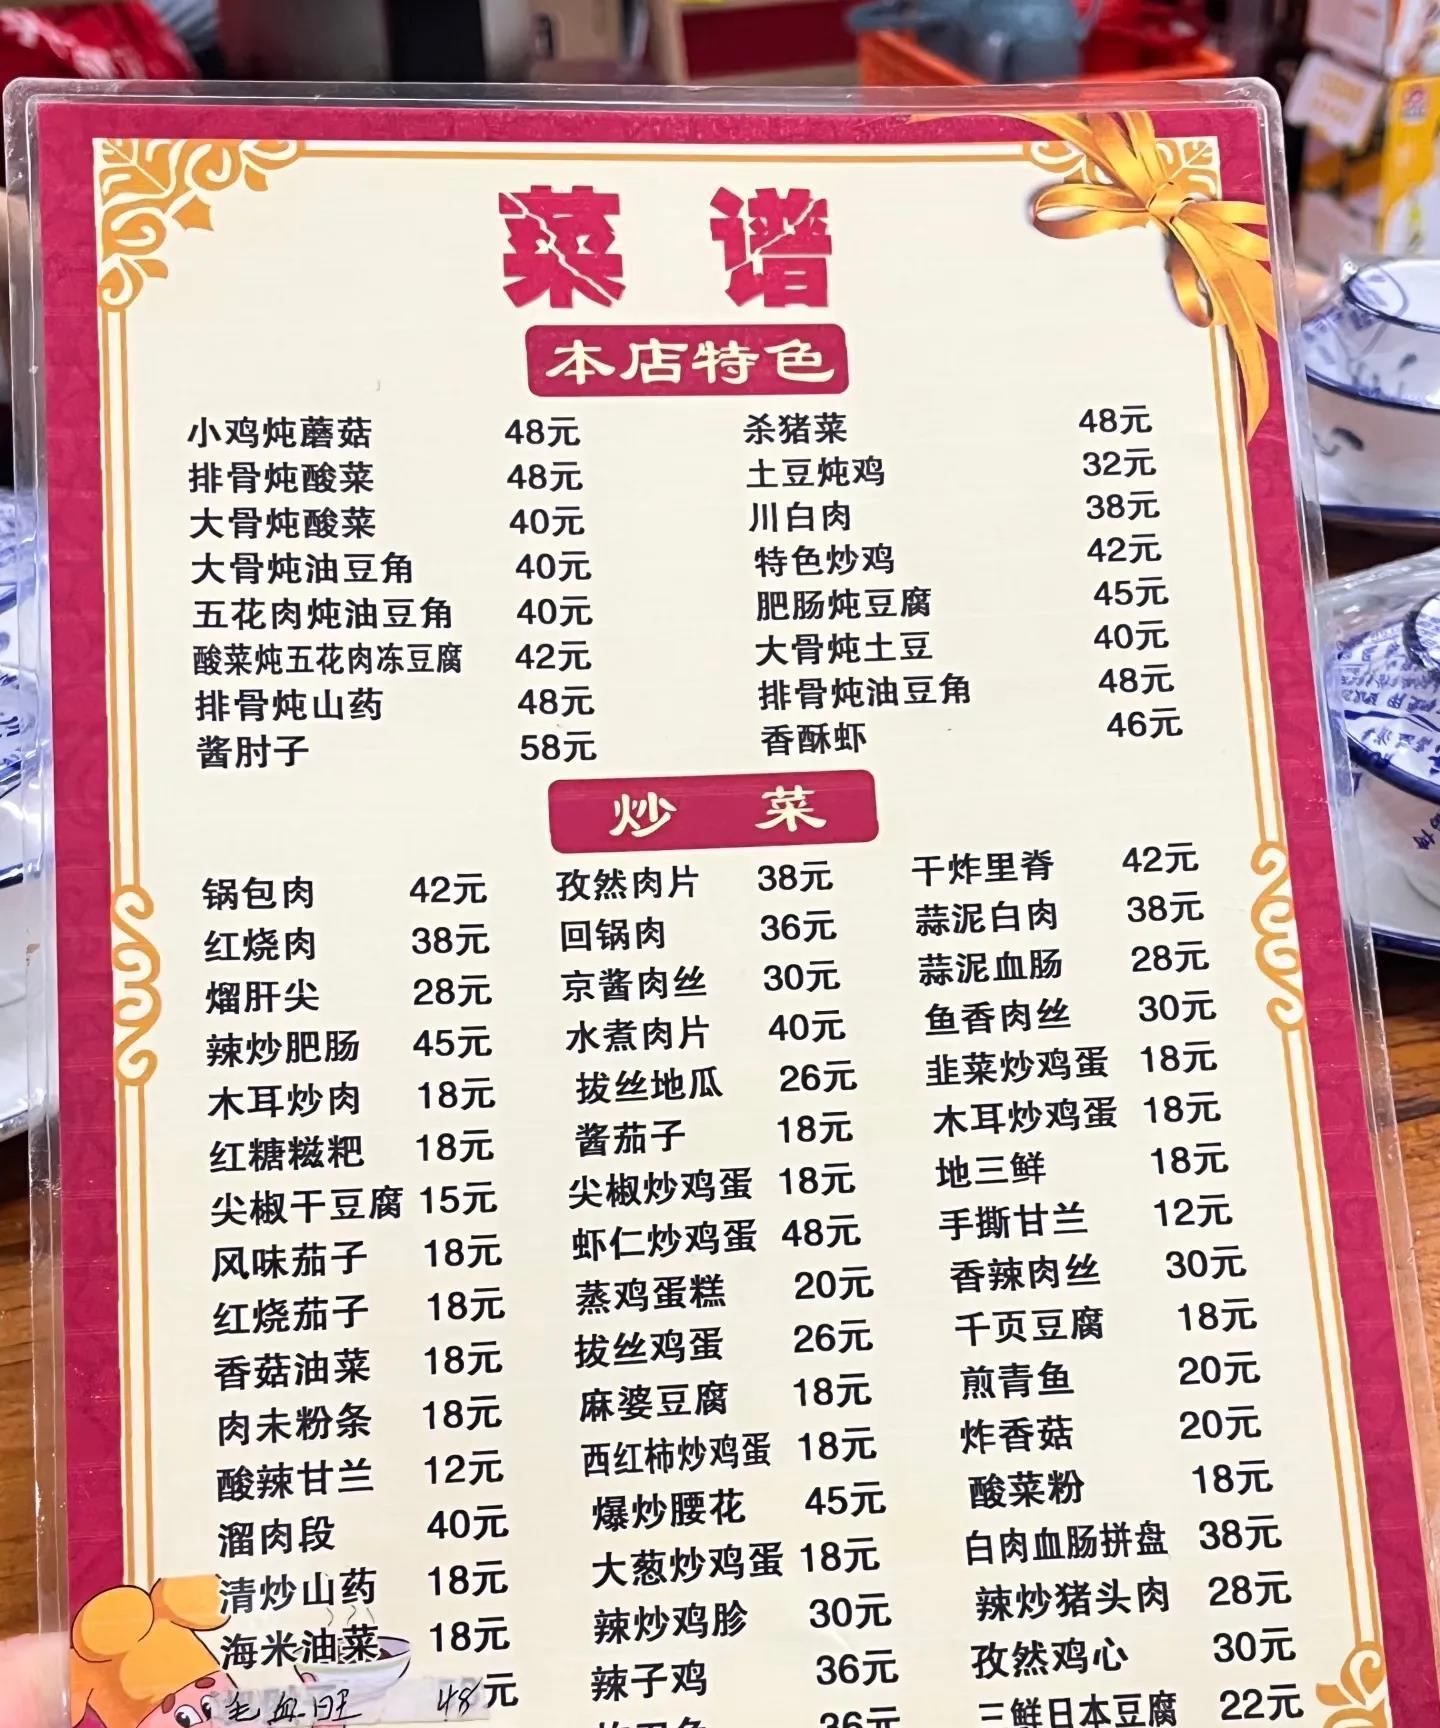 菜 谱
本店特色
小鸡炖蘑菇 48元 杀猪菜 48元
排骨炖酸菜 48元 土豆炖鸡 32元
大骨炖酸菜 40元 川白肉 38元
大骨炖油豆角 40元 特色炒鸡 42元
五花肉炖油豆角 40元 肥肠炖豆腐 45元
酸菜炖五花肉冻豆腐 42元 大骨炖土豆 40元
排骨炖山药 48元 排骨炖油豆角 48元
酱肘子 58元 香酥虾 46元
炒 菜
锅包肉 42元 孜然肉片 38元 干炸里脊 42元
红烧肉 38元 回锅肉 36元 蒜泥白肉 38元
熘肝尖 28元 京酱肉丝 30元 蒜泥血肠 28元
辣炒肥肠 45元 水煮肉片 40元 鱼香肉丝 30元
木耳炒肉 18元 拔丝地瓜 26元 韭菜炒鸡蛋 18元
红糖糍粑 18元 酱茄子 18元 木耳炒鸡蛋 18元
尖椒干豆腐 15元 尖椒炒鸡蛋 18元 地三鲜 18元
风味茄子 18元 虾仁炒鸡蛋 48元 手撕甘兰 12元
红烧茄子 18元 蒸鸡蛋糕 20元 香辣肉丝 30元
香菇油菜 18元 拔丝鸡蛋 26元 千页豆腐 18元
肉未粉条 18元 麻婆豆腐 18元 煎青鱼 20元
酸辣甘兰 12元 西红柿炒鸡蛋 18元 炸香菇 20元
溜肉段 40元 爆炒腰花 45元 酸菜粉 18元
清炒山药 18元 大葱炒鸡蛋 18元 白肉血肠拼盘 38元
海米油菜 18元 辣炒鸡胗 30元 辣炒猪头肉 28元
毛血旺 48元 辣子鸡 36元 孜然鸡心 30元
36元 三鲜日本豆腐 22元